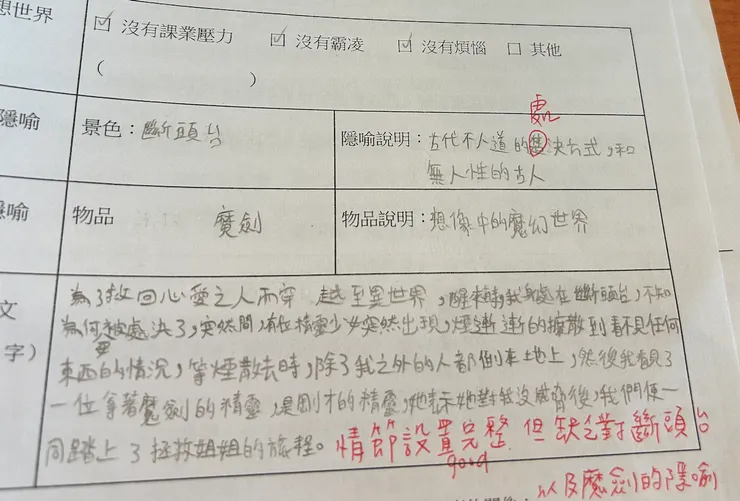 想世界
☑ 沒有課業壓力 ☑ 沒有霸凌 ☑ 沒有煩惱 ☐ 其他
( )
隱喻
景色：斷頭台
處
隱喻說明：古代不人道的決台式，和
無人性的古人
隱喻
物品 魔劍
物品說明：想像中的魔幻世界
文
字）
為了救回心愛之人而穿越至異世界，醒來時我身處在斷頭台，不知
為何要被處決了，突然間，有位精靈少女突然出現，煙漸漸的擴散到看不見任何
東西的情況，等煙散去時，除了我之外的人都倒在地上，然後我看見了
一位拿著魔劍的精靈，是剛才的精靈，她表示她對我沒威脅後，我們便一
同踏上了拯救姐姐的旅程。
情節設置完整，但缺乏對斷頭台
good
以及魔劍的隱喻